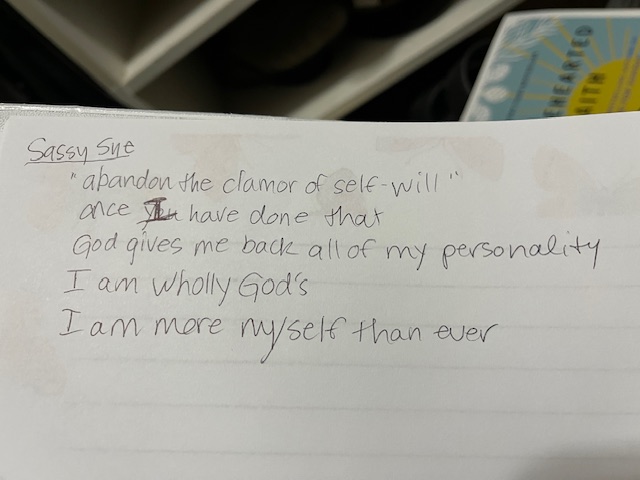 EHEARTED
AITH
Sassy Sue
"abandon the clamor of self-will"
once I have done that
God gives me back all of my personality
I am wholly God's
I am more myself than ever